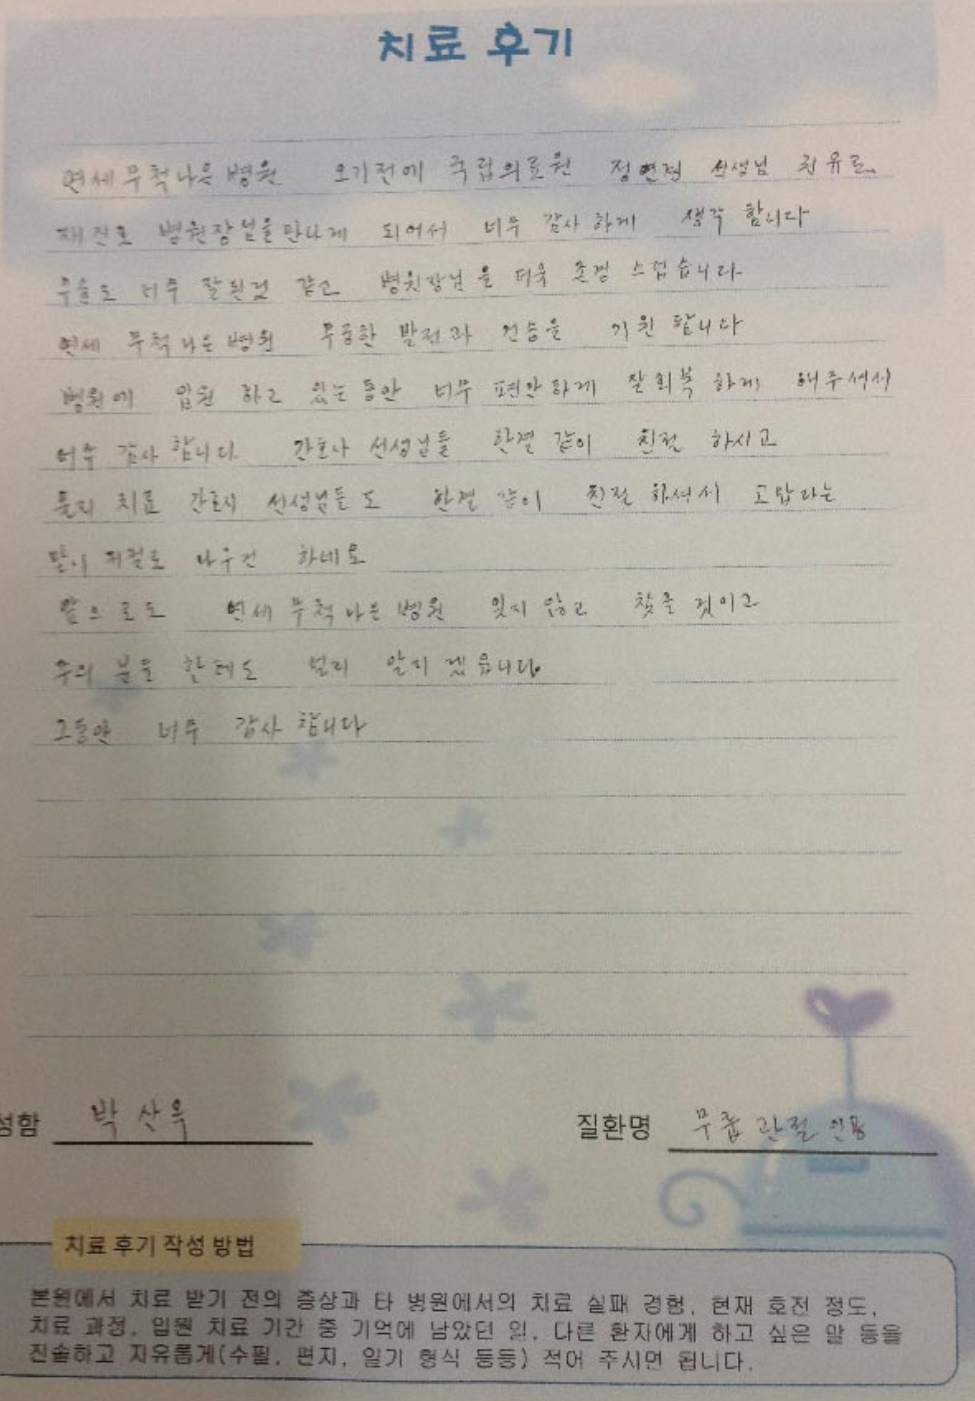 치료 후기
연세무척나은병원 오기전에 국립의료원 선생님 권유로
병원장님을만나게 되어서 너무 감사 하게 생각 합니다
수술도 너무 잘된것 같고 병원장님을 더욱 존경 스럽습니다
연세 무척나은병원 무궁한 발전과 건승을 기원 합니다
병원에 입원 하고 있는동안 너무 편안하게 잘회복 하게 해주셔서
너무 감사합니다. 간호사 선생님들 한결 같이 친절 하시고
물리 치료 선생님들도 한결 같이 친절 하셔서 고맙다는
말이 저절로 나우건 하네요
앞으로도 연세 무척나은병원 잊지 않고 찾을 것이고
주의 분들 한테도 널리 알리 겠읍니다.
그동안 너무 감사 합니다
성함 박산옥
질환명 무릎관절
치료 후기 작성 방법
본원에서 치료 받기 전의 증상과 타 병원에서의 치료 실패 경험, 현재 호전 정도,
치료 과정, 입원 치료 기간 중 기억에 남았던 일, 다른 환자에게 하고 싶은 말 등을
진솔하고 자유롭게(수필, 편지, 일기 형식 등등) 적어 주시면 됩니다.